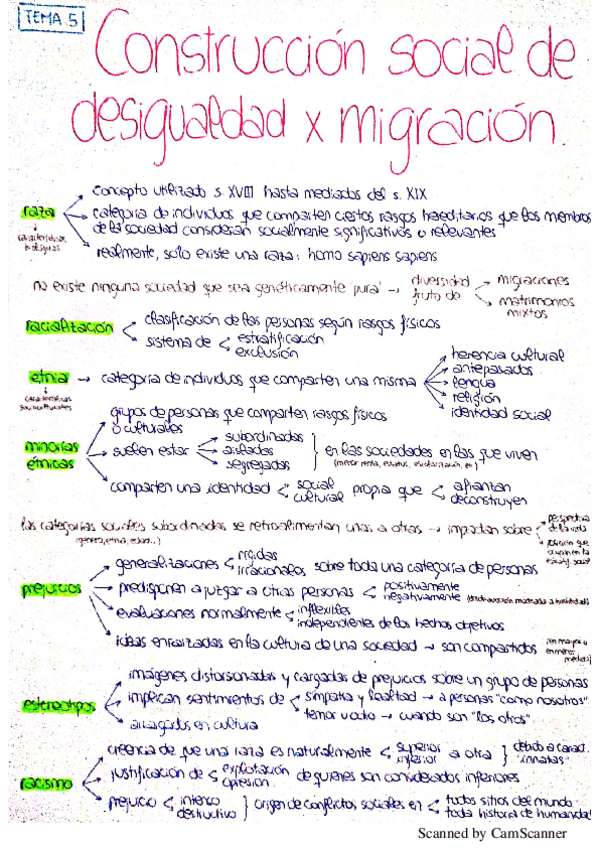 TEMA 5
Construcción social de
desigualdad x migración.
concepto utilizado s. XVIII hasta mediados del s. XIX
raza
categoría de individuos que comparten ciertos rasgos hereditarios que los miembros
de la sociedad consideran socialmente significativos o relevantes
características
biológicas
realmente, solo existe una raza: homo sapiens sapiens
no existe ninguna sociedad que sea genéticamente pura → diversidad fruto de
migraciones
matrimonios mixtos
racialización
clasificación de las personas según rasgos físicos
sistema de
estratificación
exclusión
etnia → categoría de individuos que comparten una misma
características
socioculturales
herencia cultural
antepasados
lengua
religión
identidad social
minorías
étnicas
grupos de personas que comparten rasgos físicos
o culturales
suelen estar
subordinadas
aisladas
segregadas
en las sociedades en las que viven
(menor renta, estatus, escolarización, etc)
comparten una identidad
social
cultural
propia que
afianzan
deconstruyen
las categorías sociales subordinadas se retroalimentan unas a otras → impactan sobre
(género, etnia, edad...)
perspectiva
de la vida
posición que
ocupan en la
estratif. social
prejuicios
generalizaciones
rígidas
irracionales
sobre toda una categoría de personas
predisponen a juzgar a otras personas
positivamente
negativamente
evaluaciones normalmente
inflexibles
independientes de los hechos objetivos
ideas enraizadas en la cultura de una sociedad → son compartidos
(en mayor o
en menor
medida)
estereotipos
imágenes distorsionadas y cargadas de prejuicios sobre un grupo de personas
implican sentimientos de
simpatía y lealtad → a personas "como nosotros"
temor u odio → cuando son "los otros"
arraigados en cultura
racismo
creencia de que una raza es naturalmente
superior
inferior
a otra
debido a caract.
"innatas"
justificación de
explotación
opresión
de quienes son considerados inferiores
prejuicio
intenso
destructivo
origen de conflictos sociales en
todos sitios del mundo
toda historia de humanidad
Scanned by CamScanner